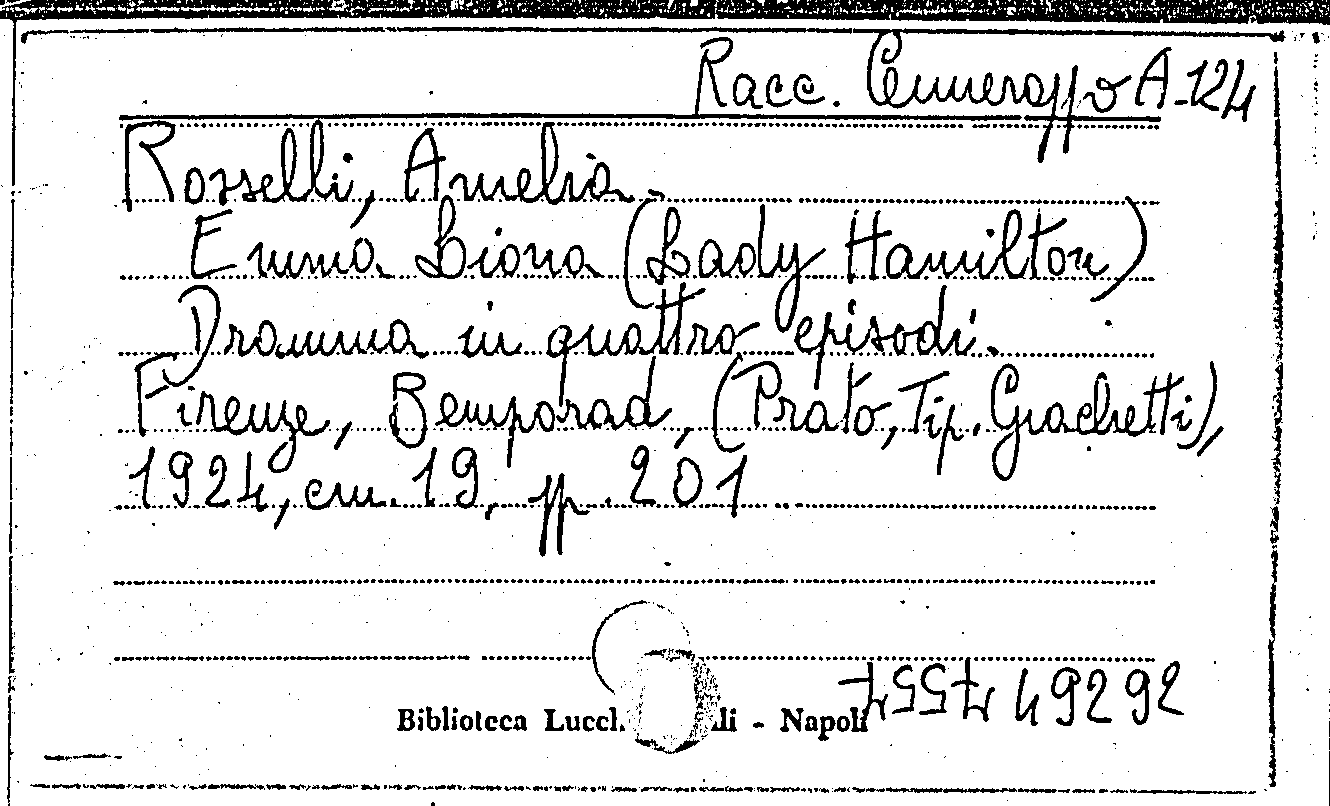 Racc. Cennerazzo A-124
Rosselli, Amelia.
Emma Liona (Lady Hamilton)
Dramma in quattro episodi.
Firenze, Bemporad, (Prato, Tip. Giachetti),
1924, cm. 19, pp. 201
Biblioteca - Napoli